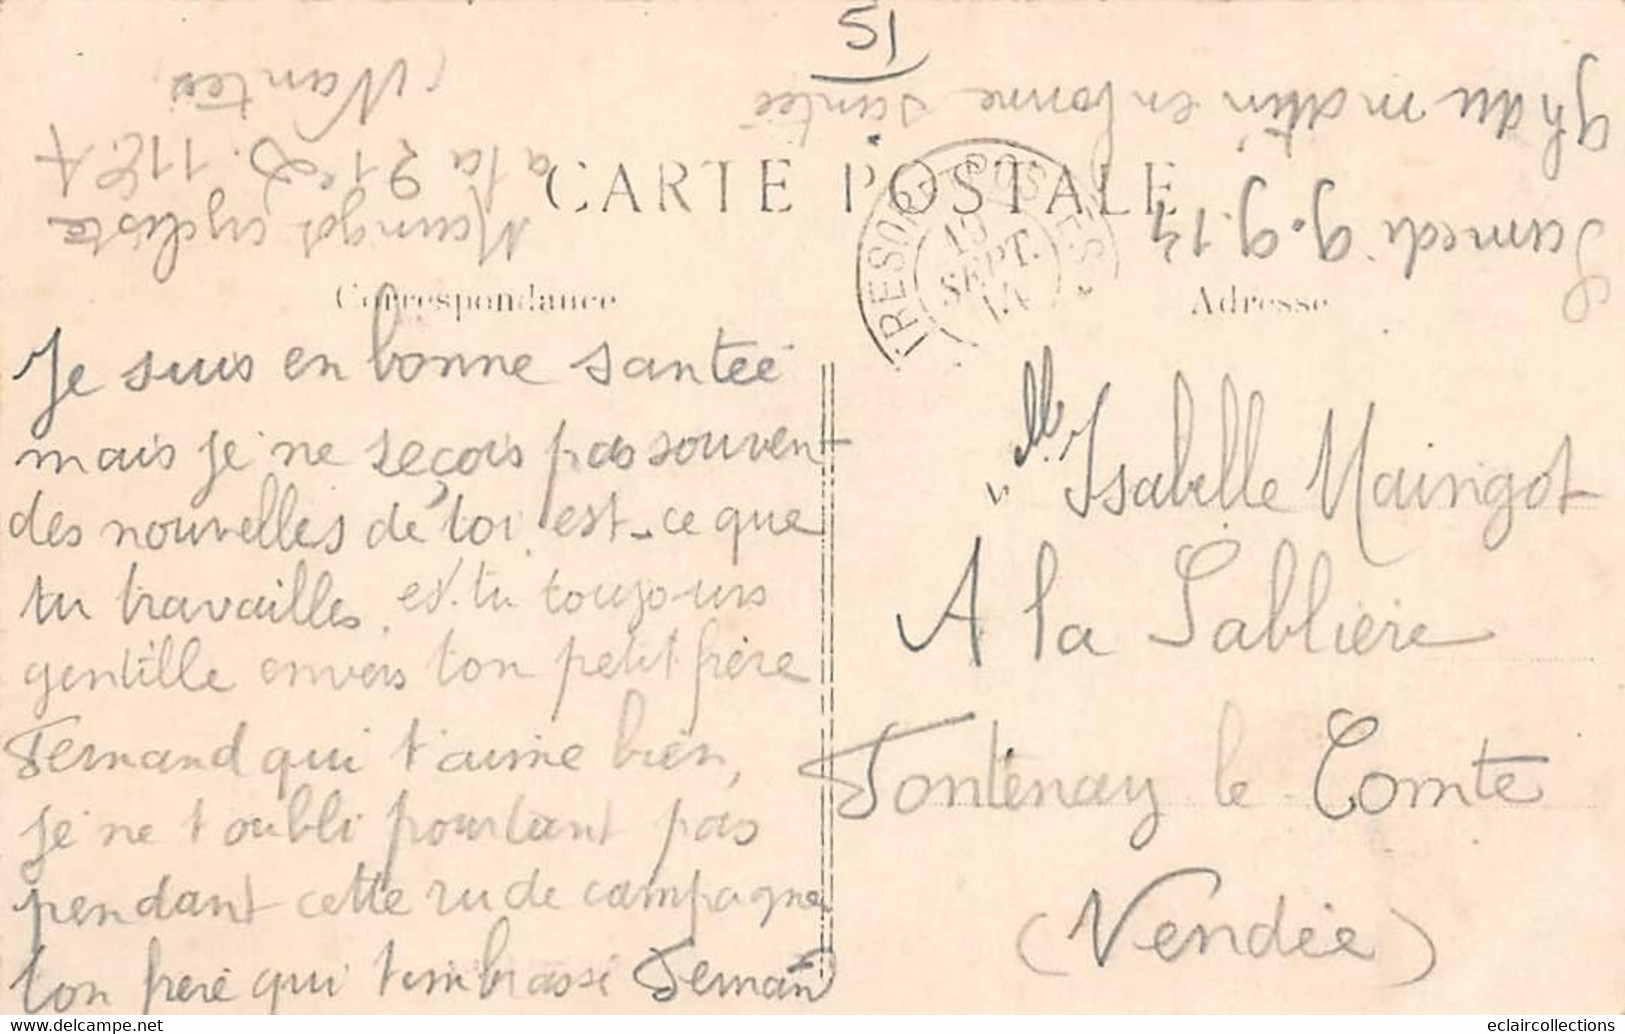 51
Maingot cycliste
a la 21e D. 11C A
(Nantes
Samedi 9.9.14
9h du matin en bonne santée
CARTE POSTALE
TRESOR ET POSTES
19
SEPT.
14
Correspondance
Adresse
Je suis en bonne santée
mais je ne reçois pas souvent
des nouvelles de toi, est-ce que
tu travailles, es-tu toujours
gentille envers ton petit frère
Fernand qui t'aime bien,
je ne t'oubli pourtant pas
pendant cette rude campagne
ton frère qui t'embrasse Fernand
Mlle Isabelle Maingot
A la Sablière
Fontenay le Comte
(Vendée)
www.delcampe.net
eclaircollections